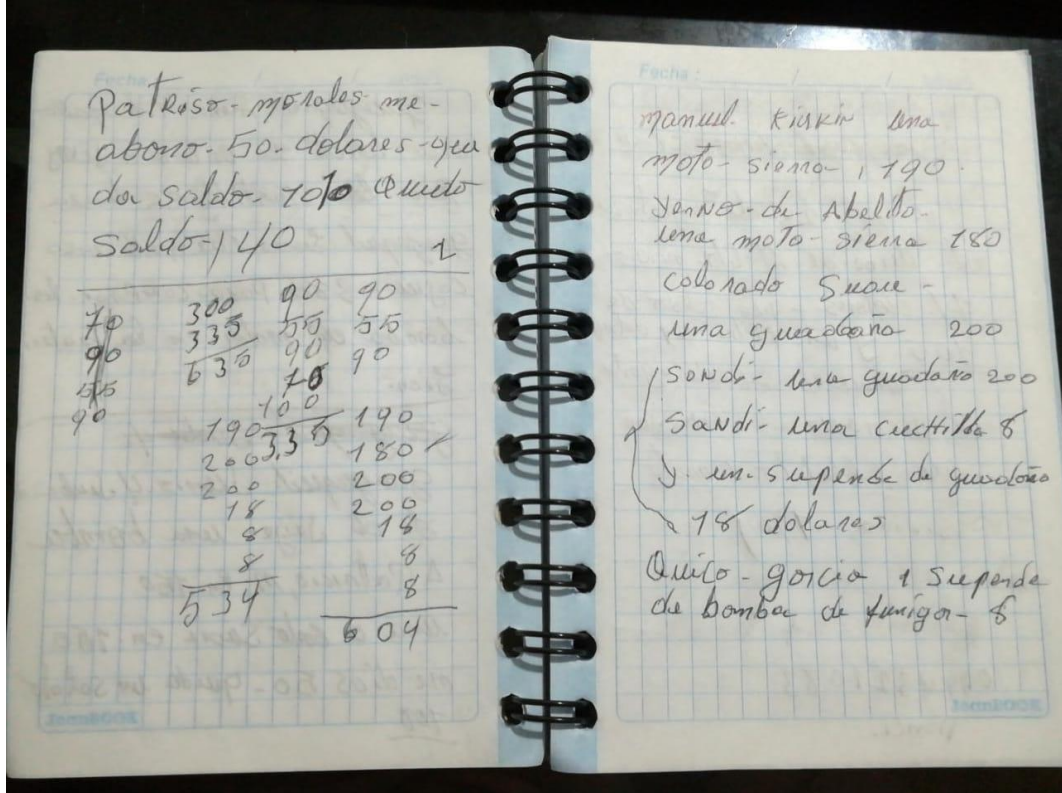 Fecha
Patriso - morales me -
abono - 50 - dolares - que
da saldo - Quedo
Saldo - 140
70 300 90 90
90 335 55 55
55 635 90 90
90
100
190 335 190
200 180
200 200
18 200
8 18
8 8
534 8
604
JeanBOOK
Fecha: / /
manuel. Kirkir una
moto - sierra, 190.
Yerno - de Abelito -
una moto - sierra 180
Colorado Suare -
una guadaña 200
Sandi - una guadaña 200
Sandi - una cuchilla 8
y. un. supende de guadaña
18 dolares
Quico - garcia 1 Supende
de bomba de fumigar - 8
JeanBOOK